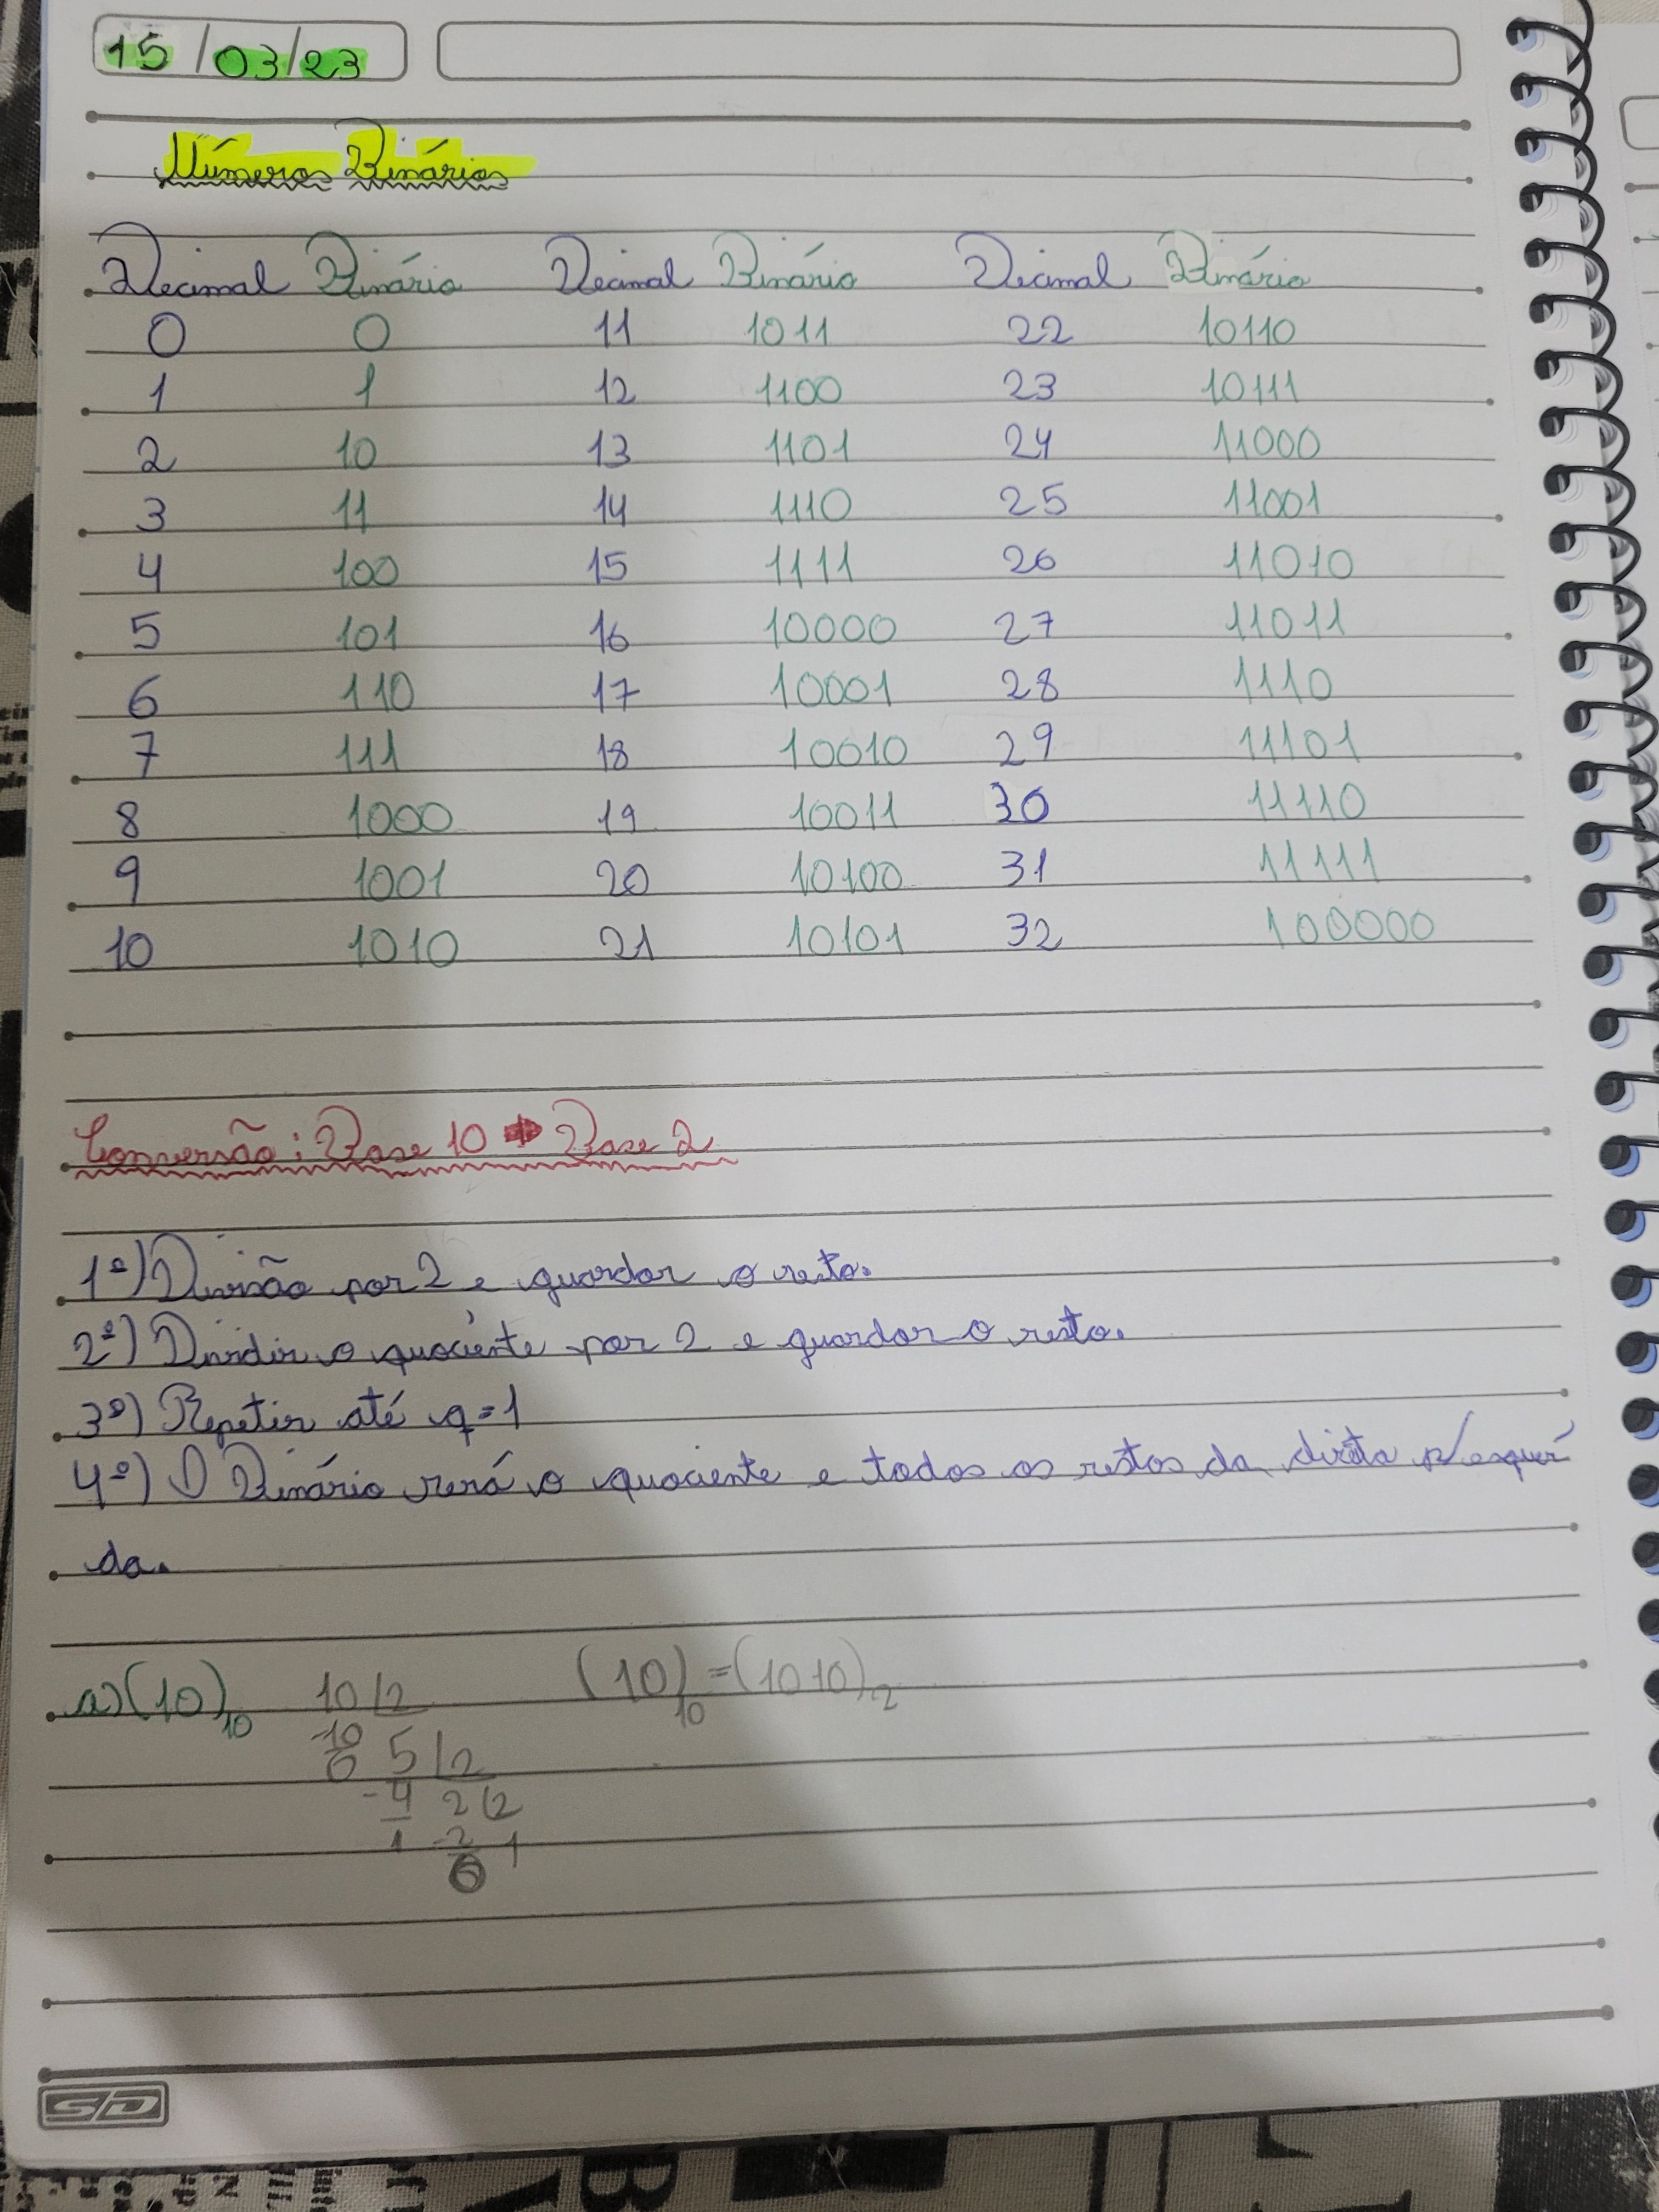 15/03/23
Números Binários
Decimal Binário Decimal Binário Decimal Binário
0 0 11 1011 22 10110
1 1 12 1100 23 10111
2 10 13 1101 24 11000
3 11 14 1110 25 11001
4 100 15 1111 26 11010
5 101 16 10000 27 11011
6 110 17 10001 28 1110
7 111 18 10010 29 11101
8 1000 19 10011 30 11110
9 1001 20 10100 31 11111
10 1010 21 10101 32 100000
Conversão: Base 10 → Base 2
1º) Divisão por 2 e guardar o resto.
2º) Dividir o quociente por 2 e guardar o resto.
3º) Repetir até q=1
4º) O Binário será o quociente e todos os restos da direta p/ esquer
da.
a) (10)10 10 2 (10)10 = (1010)2
-10
0 5 2
-4 2 2
1 -2 1
0
SD